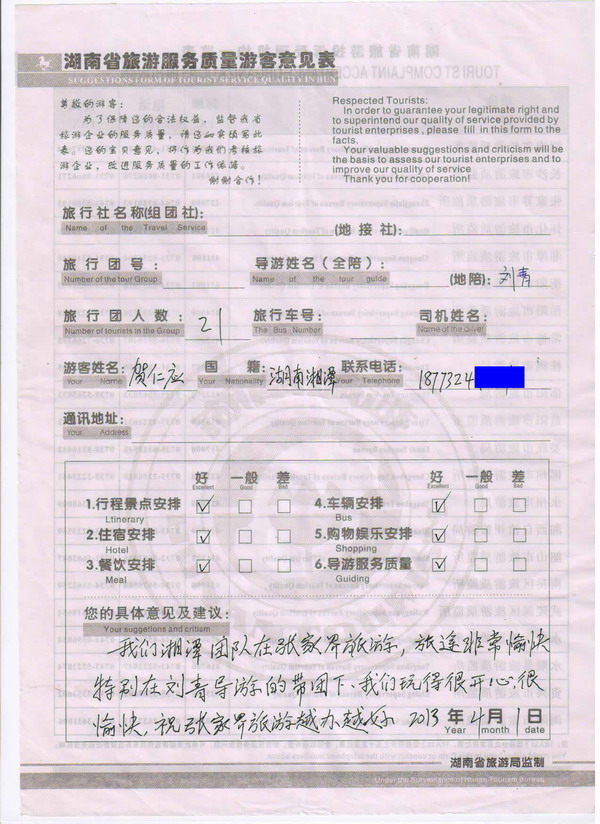 湖南省旅游服务质量游客意见表
SUGGESTIONS FORM OF TOURIST SERVICE QUALITY IN HUN
尊敬的游客：
为了保障您的合法权益，监督我省
旅游企业的服务质量，请您如实填写此
表。您的宝贵意见，将作为我们考核旅
游企业，改进服务质量的工作依据。
谢谢合作！
Respected Tourists:
In order to guarantee your legitimate right and
to superintend our quality of service provided by
tourist enterprises , please fill in this form to the
facts.
Your valuable suggestions and criticism will
be the basis to assess our tourist enterprises and to
improve our quality of service
Thank you for cooperation!
旅行社名称(组团社):
Name of the Travel Service
(地接社):
旅行团号:
Number of the tour Group
导游姓名(全陪):
Name of the tour guide
(地陪): 刘青
旅行团人数: 21
Number of tourists in the Group
旅行车号:
The Bus Number
司机姓名:
Name of the driver
游客姓名: 贺仁应
Your Name
国籍: 湖南湘潭
Your Nationality
联系电话: 1877324
Your Telephone
通讯地址:
Your Address
好 一般 差 好 一般 差
Excellent Good Bad Excellent Good Bad
1.行程景点安排 4.车辆安排
Ltinerary Bus
2.住宿安排 5.购物娱乐安排
Hotel Shopping
3.餐饮安排 6.导游服务质量
Meal Guiding
您的具体意见及建议:
Your suggetions and critism
我们湘潭团队在张家界旅游，旅途非常愉快
特别在刘青导游的带团下、我们玩得很开心、很
愉快，祝张家界旅游越办越好 2013 年 4 月 1 日
Year month date
湖南省旅游局监制
Under the Surveillance of Hunan Tourism Bureau